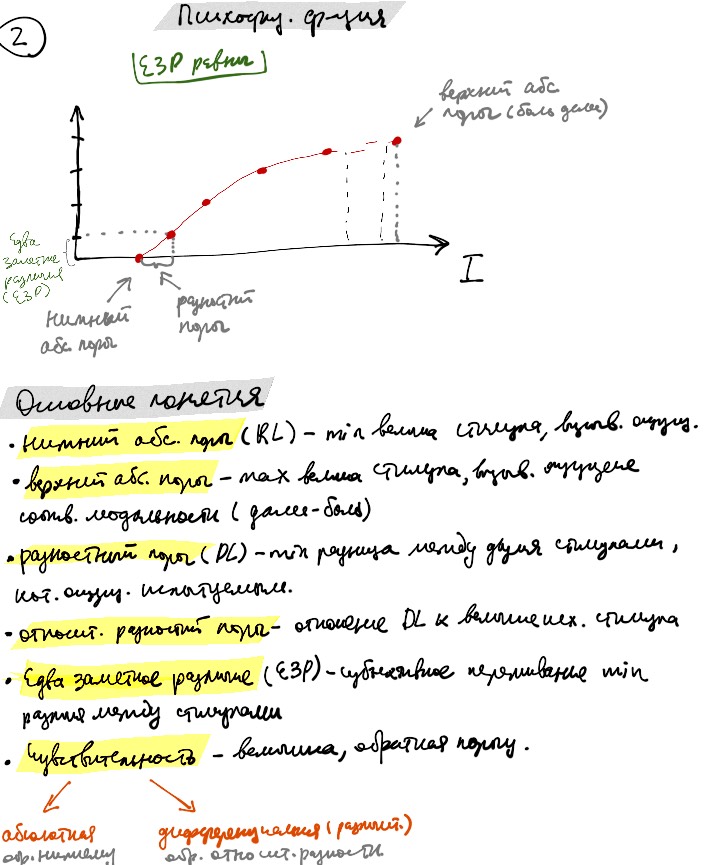 2
Психофиз. ф-ция
ЕЗР равны
верхний абс
порог (боль далее)
Едва
заметн
различия
(ЕЗР)
I
нижний
абс. порог
разностн
порог
Основные понятия
• нижний абс. порог (RL) – min велич стимула, вызыв. ощущ.
• верхний абс. порог – max велич стимула, вызыв. ощущение
соотв. модальности (далее-боль)
• разностный порог (DL) – min разница между двумя стимулами,
кот. ощущ. испытуемым.
• относит. разностн порог – отношение DL к величине исх. стимула
• Едва заметное различие (ЕЗР) – субъективное переживание min
разния между стимулами
• Чувствительность – величина, обратная порогу.
абсолютная
дифференциальная (разност.)
обр. нижнему
обр. относит. разностн